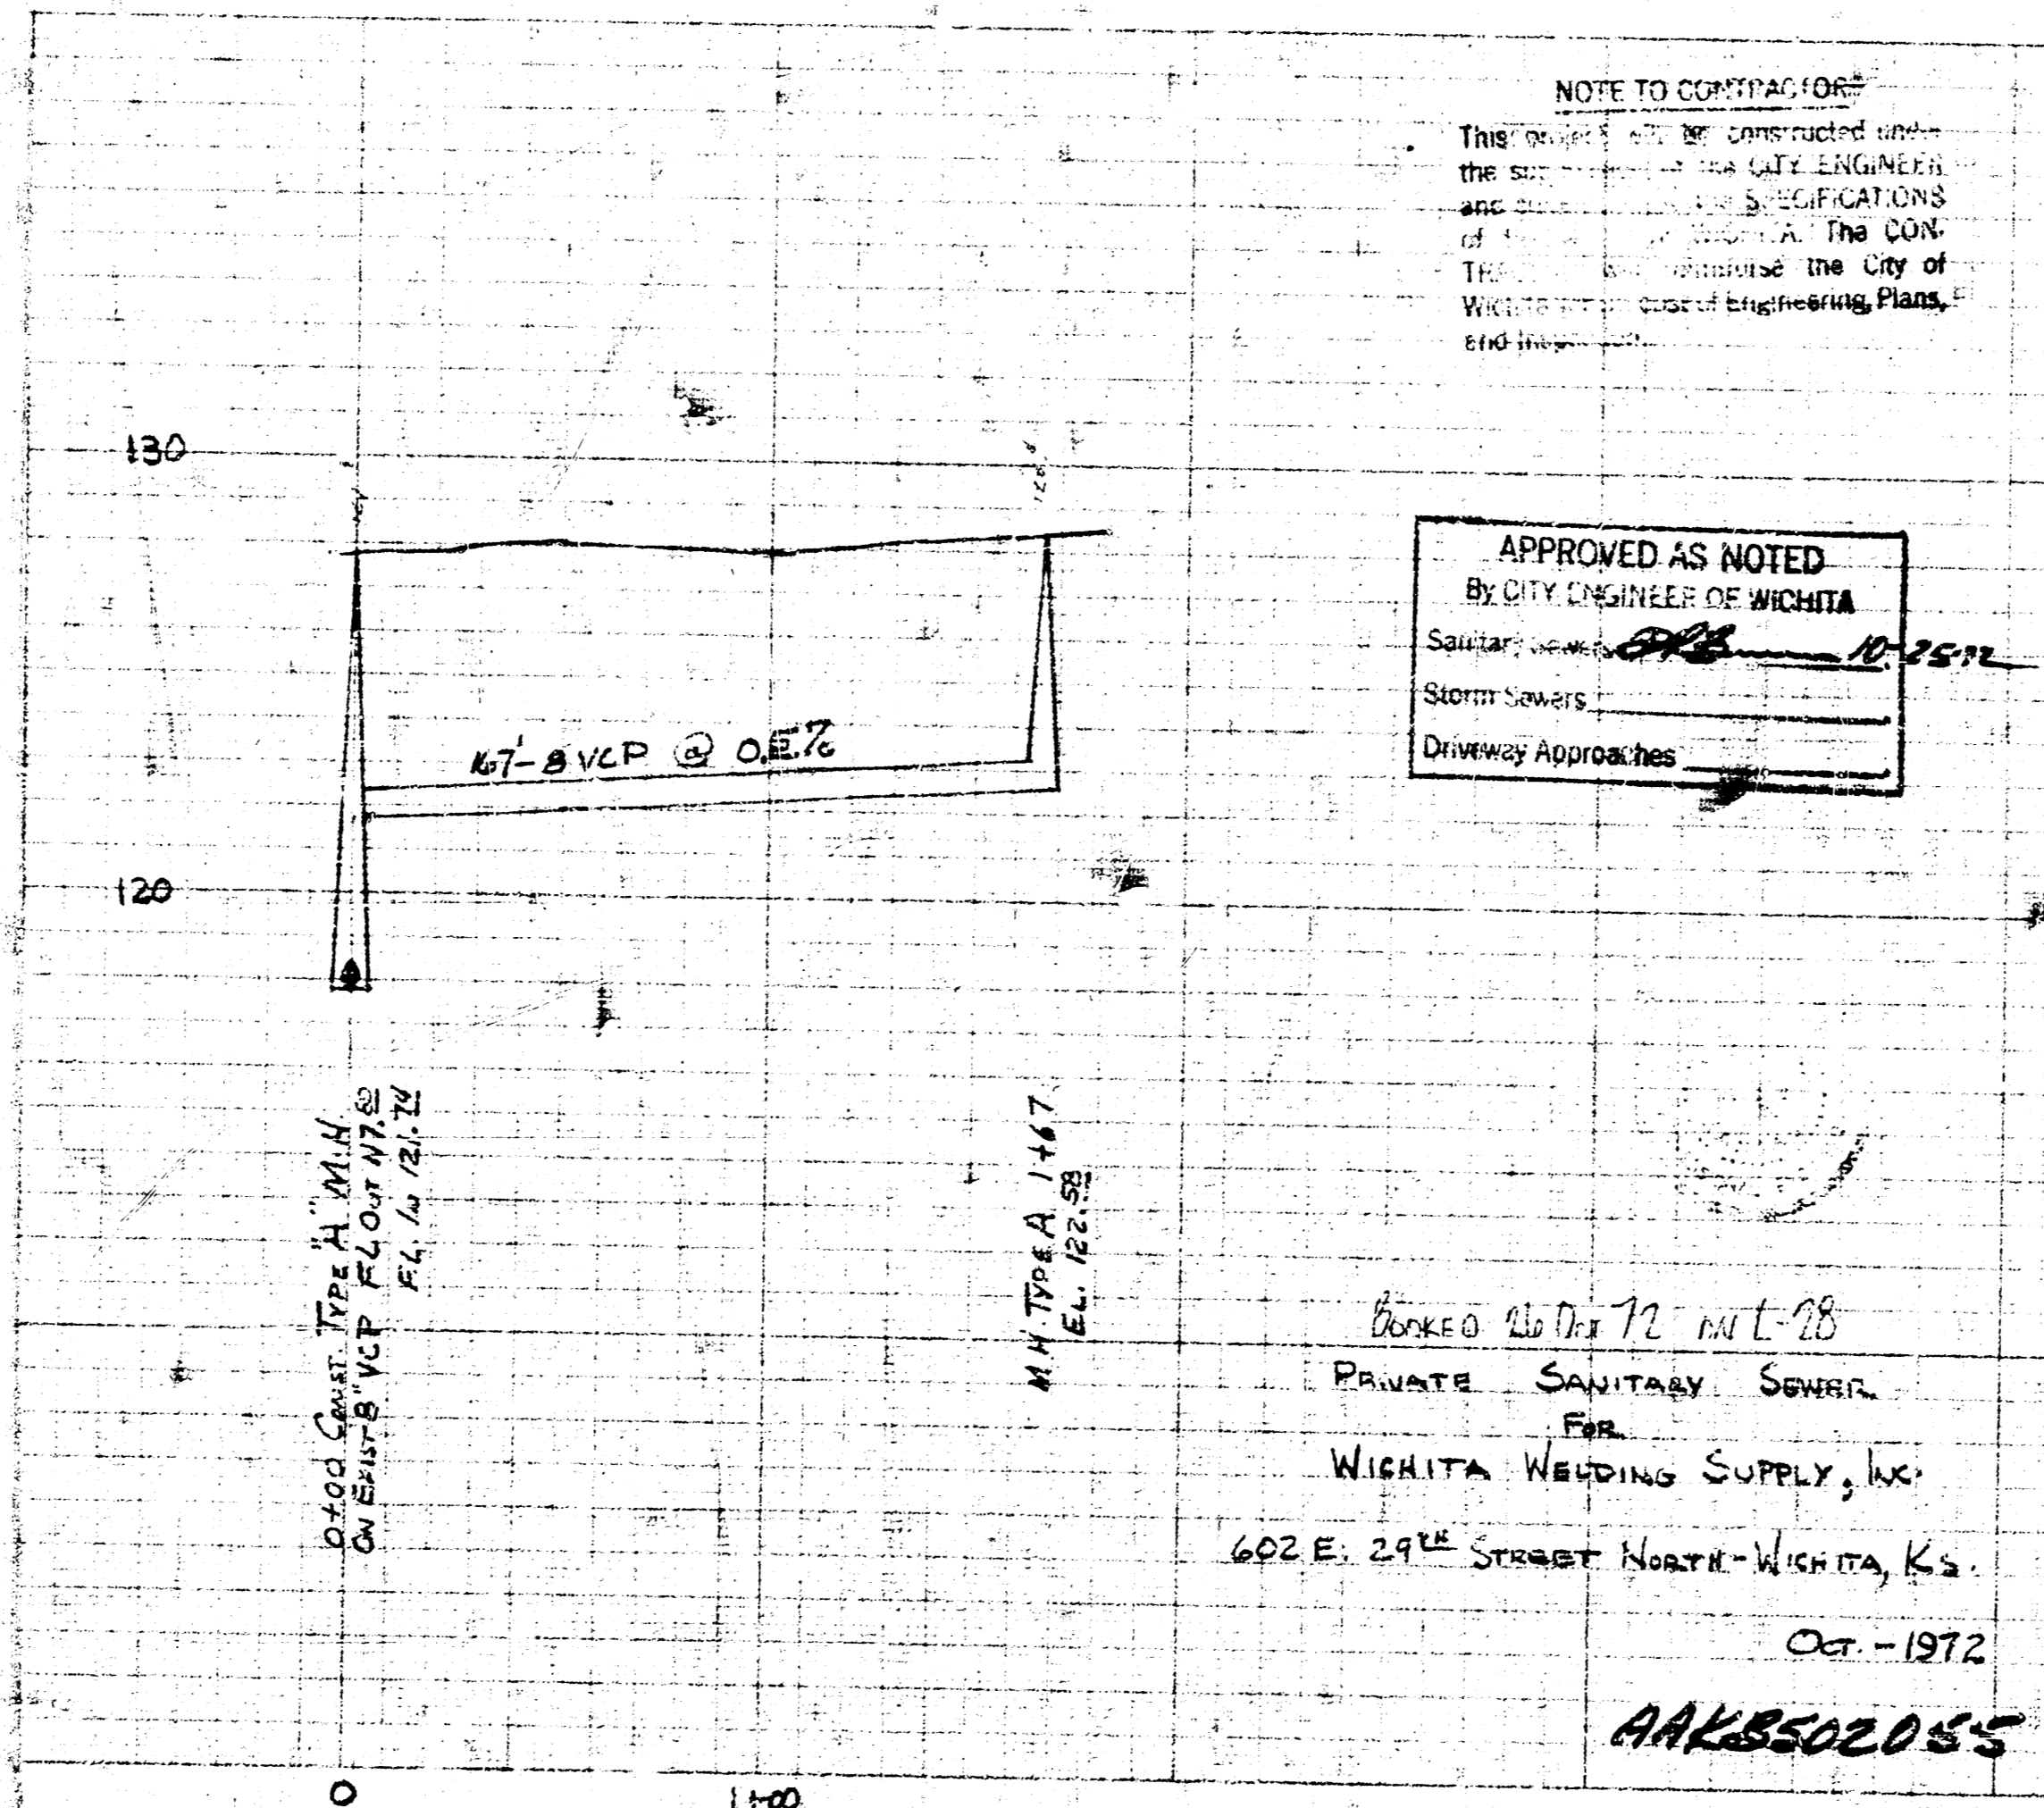 NOTE TO CONTRACTORS
This constructed
the CITY ENGINEER
and SPECIFICATIONS
of The CON-
the City of
cost of Engineering, Plans,
and
130
APPROVED AS NOTED
By CITY ENGINEER OF WICHITA
Sanitary Sewers 10-25-72
Storm Sewers
Driveway Approaches
167'-8 VCP @
120
0+00 CONST. TYPE "A" M.H.
ON EXIST 8" VCP FL OUT
FL. IN 121.74
M.H. TYPE A 1+67
EL. 122.58
BOOKED 72 L-28
PRIVATE SANITARY SEWER
FOR
WICHITA WELDING SUPPLY, INC.
602 E. 29TH STREET NORTH - WICHITA, KS.
OCT. - 1972
AAKB502055
0 1+00